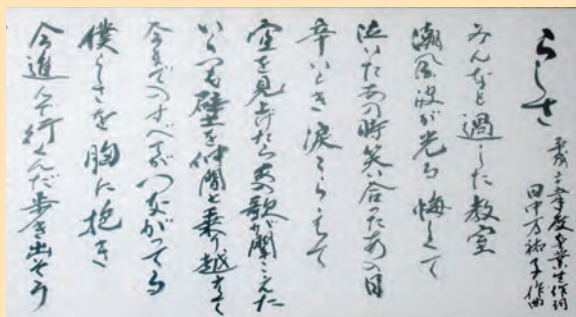 らしさ
平成二十年度卒業生作詞
田中万祐子作曲
みんなと過した教室
潮風波が光る 悔しくて
泣いたあの時笑い合ったあの日
辛いとき涙こらえて
空を見上げたらあの歌が聞こえた
いくつも壁を仲間と乗り越えて
今までのすべてがつながってる
僕らしさを胸に抱き
今進んで行くんだ歩き出そう